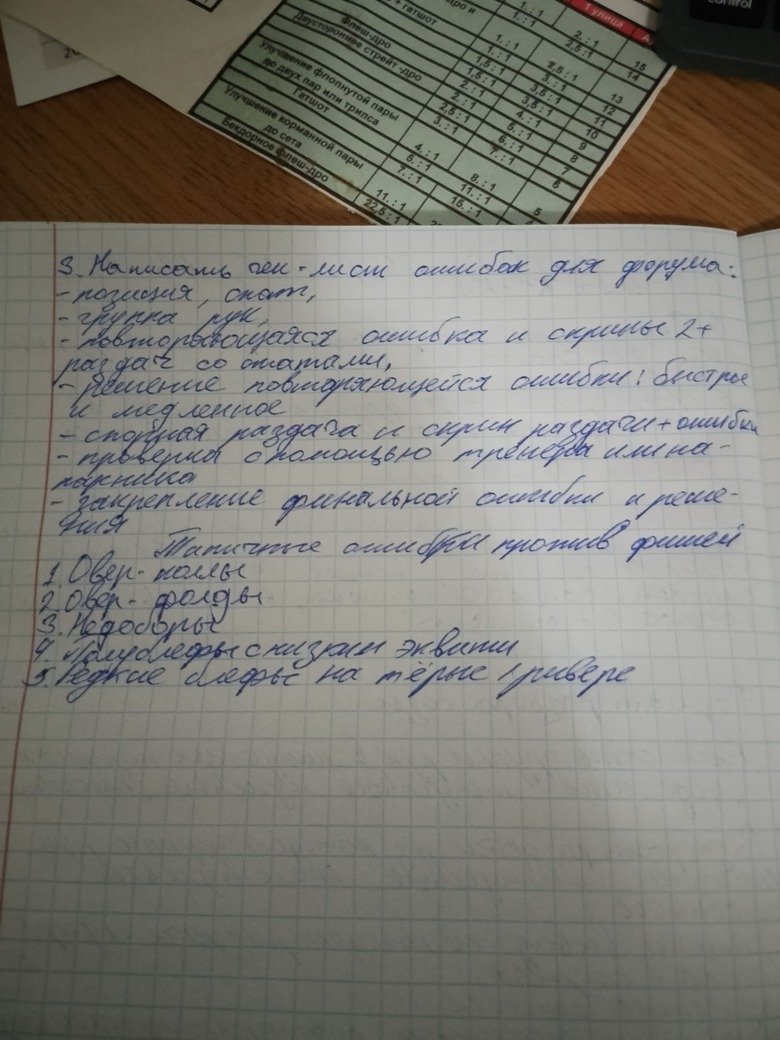 control
1 улица
дро и
+ гатшот
Флеш-дро
Двустороннее стрейт-дро
Улучшение флопнутой пары
до двух пар или трипса
Гатшот
Улучшение карманной пары
до сета
Бекдорное флеш-дро
1.:1
1.:1
2.:1
2,5:1
15
1.:1
1.:1
2,5:1
14
1,5:1
3.:1
13
1,5:1
3,5:1
12
2.:1
3,5:1
11
2.:1
4.:1
10
2,5:1
5.:1
9
3.:1
6.:1
8
7.:1
7
4.:1
6
5.:1
8.:1
7.:1
11.:1
5
11.:1
15.:1
4
22,5:1
3. Написать чек-лист ошибок для форума:
- позиция, спот,
- группа рук,
- повторяющаяся ошибка и скрины 2+
раздач со статами,
- решение повторяющейся ошибки: быстрое
и медленное
- спорная раздача и скрин раздачи + ошибки
- проверка с помощью тренера или на-
парника
- закрепление финальной ошибки и реше-
ния
Типичные ошибки против фишей
1. Овер-коллы
2. Овер-фолды
3. Недоборы
4. Полублефы с низким эквити
5. Редкие блефы на тёрне / ривере